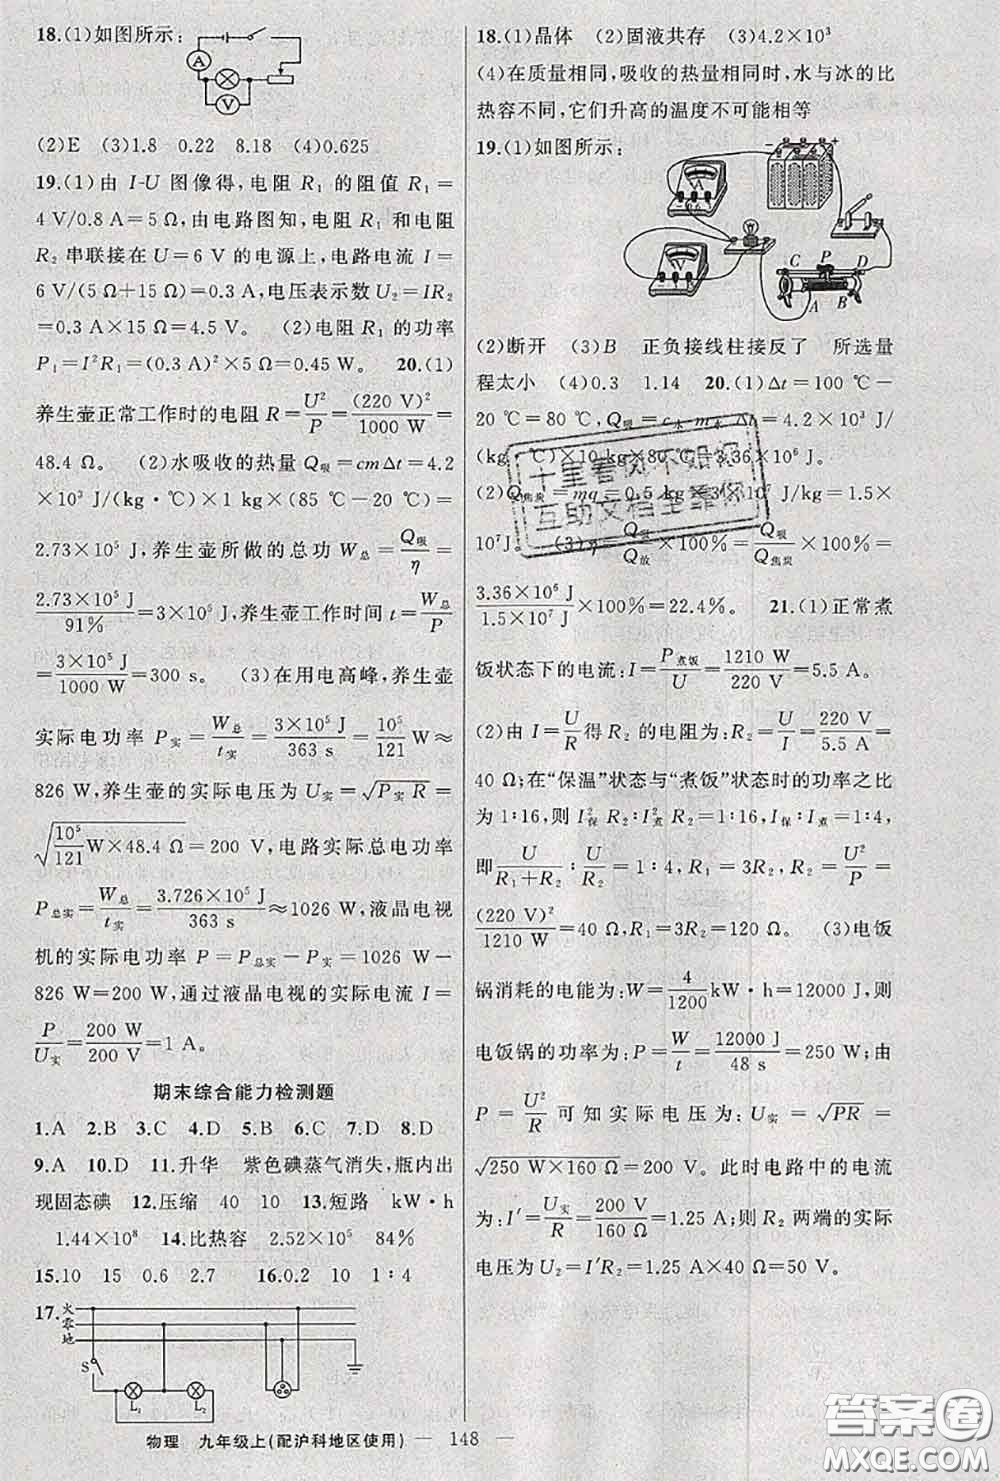 18.(1)如图所示:
A
V
(2)E　(3)1.8　0.22　8.18　(4)0.625
19.(1)由 I-U 图像得,电阻 R₁ 的阻值 R₁=
4 V/0.8 A=5 Ω,由电路图知,电阻 R₁ 和电阻
R₂ 串联接在 U=6 V 的电源上,电路电流 I=
6 V/(5 Ω+15 Ω)=0.3 A,电压表示数 U₂=IR₂
=0.3 A×15 Ω=4.5 V。　(2)电阻 R₁ 的功率
P₁=I²R₁=(0.3 A)²×5 Ω=0.45 W。　20.(1)
养生壶正常工作时的电阻 R=U²/P=(220 V)²/1000 W=
48.4 Ω。　(2)水吸收的热量 Q吸=cmΔt=4.2
×10³ J/(kg·℃)×1 kg×(85 ℃-20 ℃)=
2.73×10⁵ J,养生壶所做的总功 W总=Q吸/η=
2.73×10⁵ J/91%=3×10⁵ J,养生壶工作时间 t=W总/P
=3×10⁵ J/1000 W=300 s。　(3)在用电高峰,养生壶
实际电功率 P实=W总/t实=3×10⁵ J/363 s=10⁵/121 W≈
826 W,养生壶的实际电压为 U实=√(P实 R)=
√(10⁵/121 W×48.4 Ω)=200 V,电路实际总电功率
P总实=W总/t实=3.726×10⁵ J/363 s≈1026 W,液晶电视
机的实际电功率 P=P总实-P实=1026 W-
826 W=200 W,通过液晶电视的实际电流 I=
P/U实=200 W/200 V=1 A。
期末综合能力检测题
1.A　2.B　3.C　4.D　5.B　6.C　7.D　8.D
9.A　10.D　11.升华　紫色碘蒸气消失,瓶内出
现固态碘　12.压缩　40　10　13.短路　kW·h
1.44×10⁸　14.比热容　2.52×10⁵　84%
15.10　15　0.6　2.7　16.0.2　10　1∶4
17.火
零
地
S
L₁　L₂
18.(1)晶体　(2)固液共存　(3)4.2×10³
(4)在质量相同,吸收的热量相同时,水与冰的比
热容不同,它们升高的温度不可能相等
19.(1)如图所示:
- +
A
V
C P D
A B
(2)断开　(3)B　正负接线柱接反了　所选量
程太小　(4)0.3　1.14　20.(1)Δt=100 ℃-
20 ℃=80 ℃,Q吸=c水 m水 Δt=4.2×10³ J/
(kg·℃)×10 kg×80 ℃=3.36×10⁶ J。
(2)Q焦炭=mq=0.5 kg×3×10⁷ J/kg=1.5×
10⁷ J。　(3)η=Q吸/Q放×100%=Q吸/Q焦炭×100%=
3.36×10⁶ J/1.5×10⁷ J×100%=22.4%。　21.(1)正常煮
饭状态下的电流:I=P煮饭/U=1210 W/220 V=5.5 A。
(2)由 I=U/R得 R₂ 的电阻为:R₂=U/I=220 V/5.5 A=
40 Ω;在“保温”状态与“煮饭”状态时的功率之比
为 1∶16,则 I²保 R₂∶I²煮 R₂=1∶16,I保∶I煮=1∶4,
即U/(R₁+R₂)∶U/R₂=1∶4,R₁=3R₂,R₂=U²/P=
(220 V)²/1210 W=40 Ω,R₁=3R₂=120 Ω。　(3)电饭
锅消耗的电能为:W=4/1200 kW·h=12000 J,则
电饭锅的功率为:P=W/t=12000 J/48 s=250 W;由
P=U²/R可知实际电压为:U实=√(PR)=
√(250 W×160 Ω)=200 V。此时电路中的电流
为:I′=U实/R=200 V/160 Ω=1.25 A;则 R₂ 两端的实际
电压为 U₂=I′R₂=1.25 A×40 Ω=50 V。
十里春风不如你
互助文档全靠你
物理　九年级上(配沪科地区使用)　— 148 —
答案圈
MXQE.COM